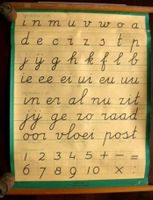 i n m u v w o a
d e c r s z t p
j ij g h k f l b
ie ee ei ui eu uu
in er al nu zit
jij ge zo raad
oor vloei post
1 2 3 4 5 + - =
6 7 8 9 10 x :